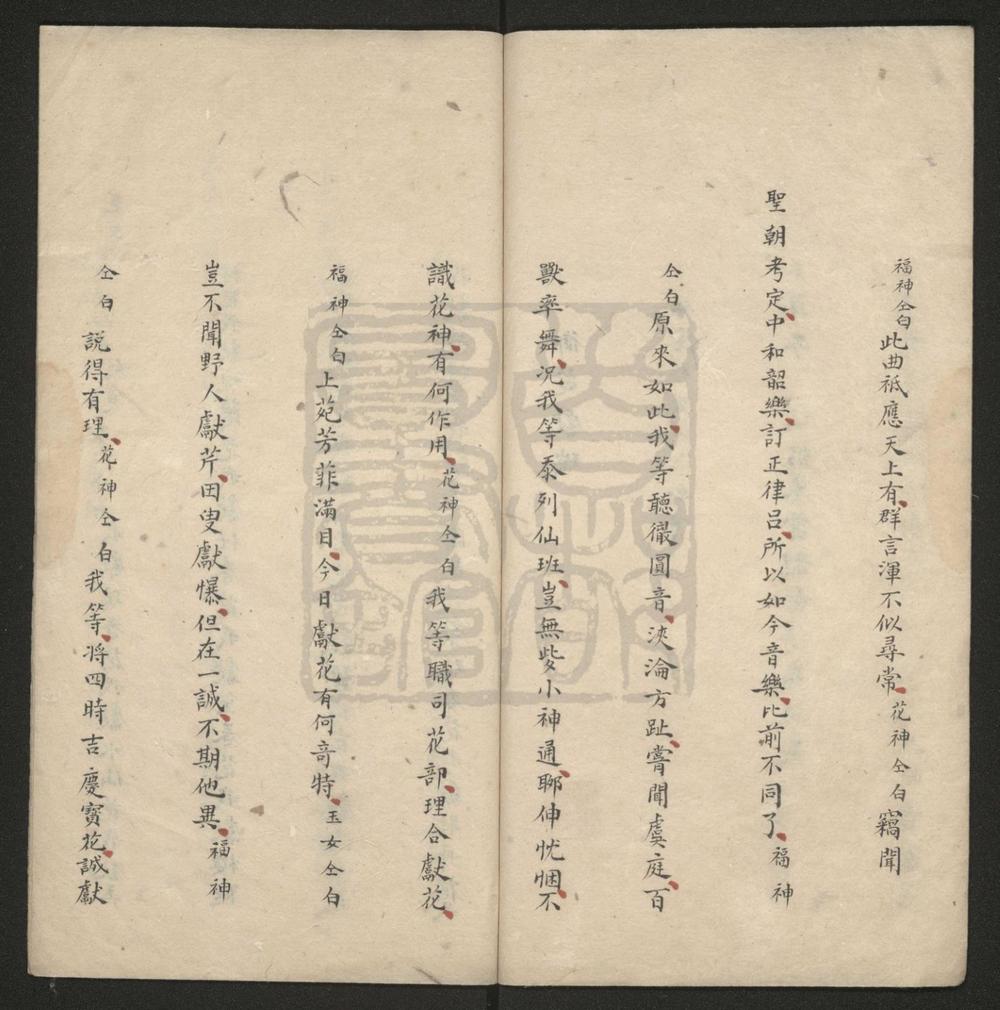 福神仝白此曲祗應天上有群言渾不似尋常花神仝白竊聞
聖朝考定中和韶樂訂正律呂所以如今音樂比前不同了福神
仝白原來如此我等聽徹圓音浹淪方趾嘗聞虞庭百
獸率舞况我等忝列仙班豈無些小神通聊伸忱悃不
識花神有何作用花神仝白我等職司花部理合獻花
福神仝白上苑芳菲滿目今日獻花有何奇特玉女仝白
豈不聞野人獻芹田叟獻爆但在一誠不期他異福神
仝白說得有理花神仝白我等將四時吉慶寶花誠獻